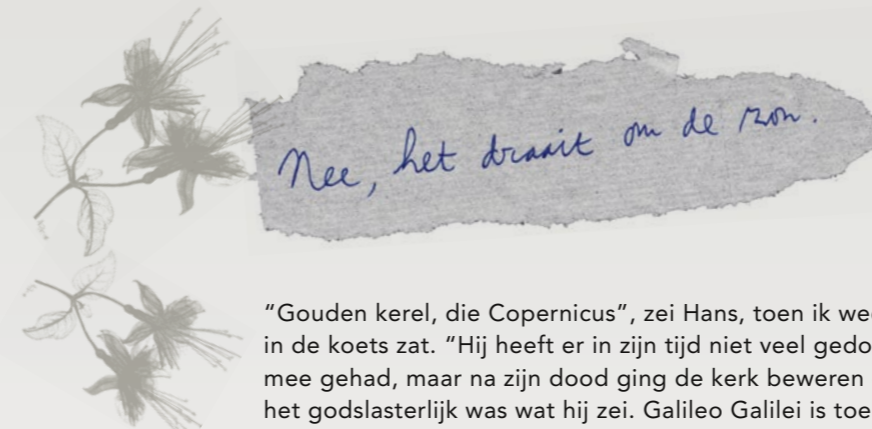 Nee, het draait om de zon.
"Gouden kerel, die Copernicus", zei Hans, toen ik
in de koets zat. "Hij heeft er in zijn tijd niet veel
mee gehad, maar na zijn dood ging de kerk beweren
het godslasterlijk was wat hij zei. Galileo Galilei is